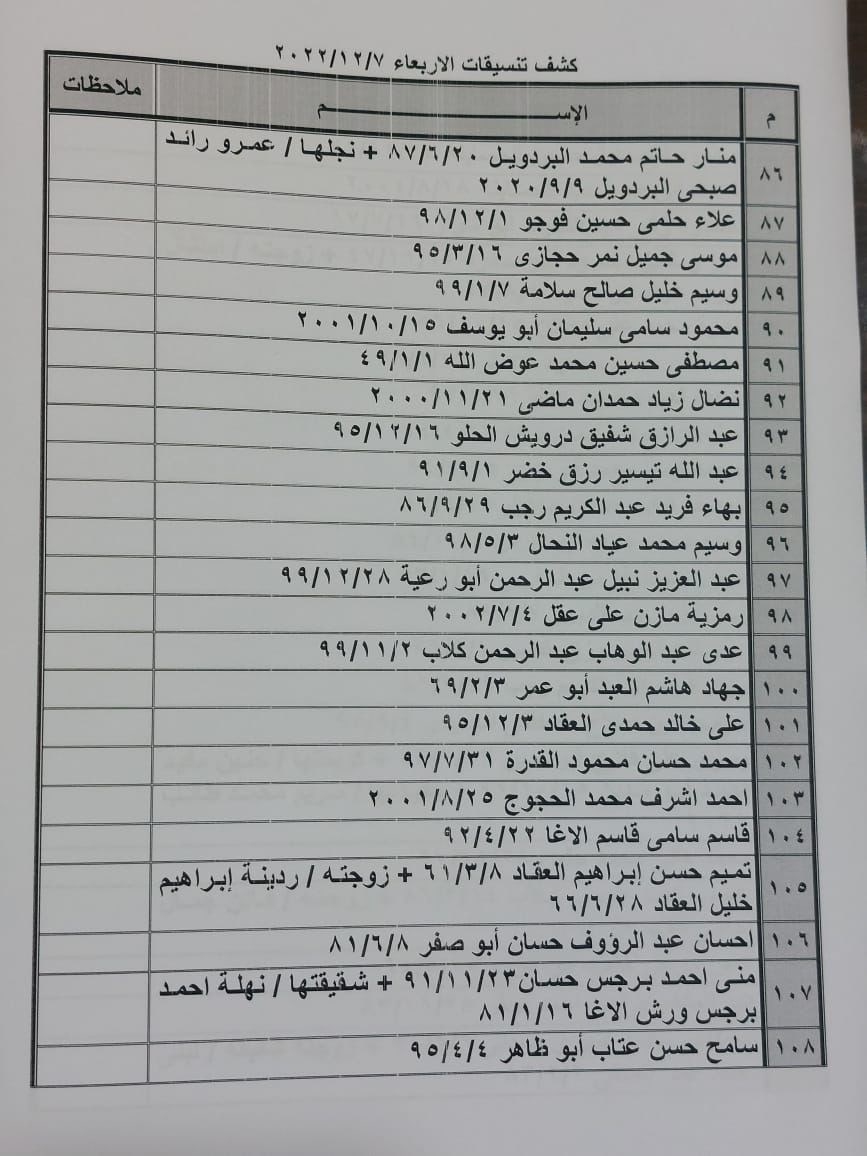 كشف تنسيقات الاربعاء ٢٠٢٢/١٢/٧
م الإســـــــم ملاحظات
٨٦ منار حاتم محمد البردويل ٨٧/٦/٢٠ + نجلها / عمرو رائد
صبحى البردويل ٢٠٢٠/٩/٩
٨٧ علاء حلمى حسين فوجو ٩٨/١٢/١
٨٨ موسى جميل نمر حجازى ٩٥/٣/١٦
٨٩ وسيم خليل صالح سلامة ٩٩/١/٧
٩٠ محمود سامى سليمان أبو يوسف ٢٠٠١/١٠/١٥
٩١ مصطفى حسين محمد عوض الله ٤٩/١/١
٩٢ نضال زياد حمدان ماضى ٢٠٠٠/١١/٢١
٩٣ عبد الرازق شفيق درويش الحلو ٩٥/١٢/١٦
٩٤ عبد الله تيسير رزق خضر ٩١/٩/١
٩٥ بهاء فريد عبد الكريم رجب ٨٦/٩/٢٩
٩٦ وسيم محمد عياد النحال ٩٨/٥/٣
٩٧ عبد العزيز نبيل عبد الرحمن أبو رعية ٩٩/١٢/٢٨
٩٨ رمزية مازن على عقل ٢٠٠٢/٧/٤
٩٩ عدى عبد الوهاب عبد الرحمن كلاب ٩٩/١١/٢
١٠٠ جهاد هاشم العبد أبو عمر ٦٩/٢/٣
١٠١ على خالد حمدى العقاد ٩٥/١٢/٣
١٠٢ محمد حسان محمود القدرة ٩٧/٧/٣١
١٠٣ احمد اشرف محمد الحجوج ٢٠٠١/٨/٢٥
١٠٤ قاسم سامى قاسم الاغا ٩٢/٤/٢٢
١٠٥ تميم حسن إبراهيم العقاد ٦١/٣/٨ + زوجته / ردينة إبراهيم
خليل العقاد ٦٦/٦/٢٨
١٠٦ احسان عبد الرؤوف حسان أبو صفر ٨١/٦/٨
١٠٧ منى احمد برجس حسان٩١/١١/٢٣ + شقيقتها / نهلة احمد
برجس ورش الاغا ٨١/١/١٦
١٠٨ سامح حسن عتاب أبو ظاهر ٩٥/٤/٤